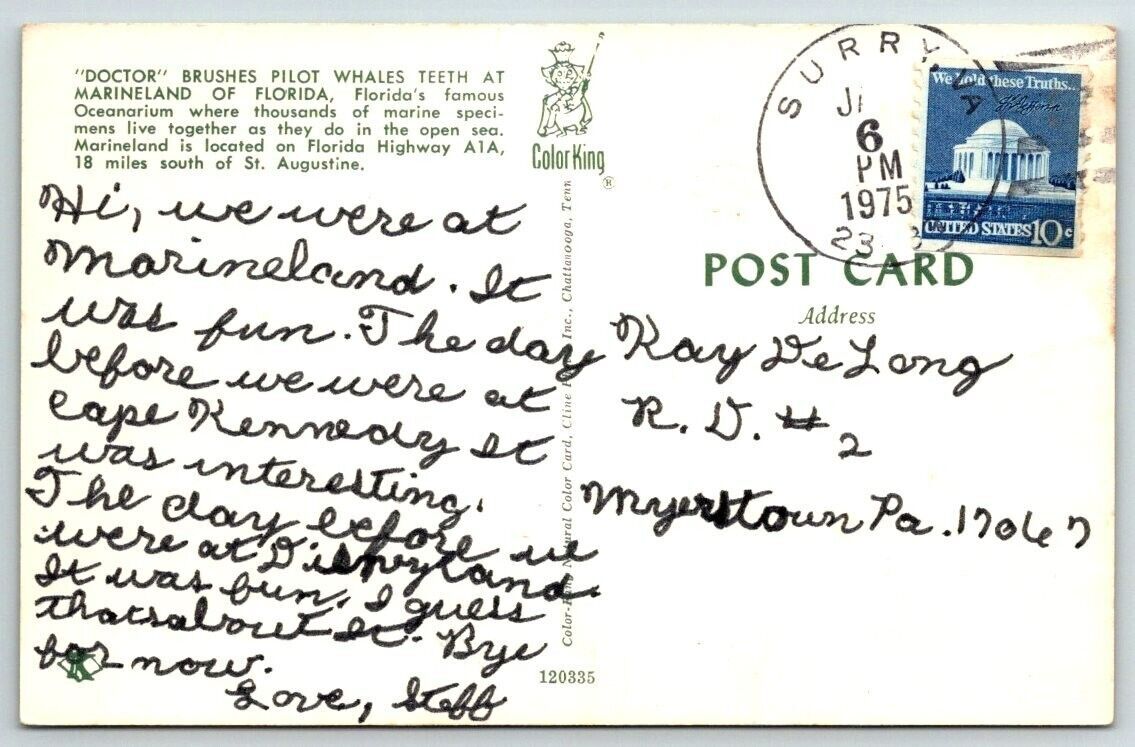 "DOCTOR" BRUSHES PILOT WHALES TEETH AT
MARINELAND OF FLORIDA, Florida's famous
Oceanarium where thousands of marine speci-
mens live together as they do in the open sea.
Marineland is located on Florida Highway A1A,
18 miles south of St. Augustine.
ColorKing
®
Hi, we were at
Marineland. It
was fun. The day
before we were at
Cape Kennedy It
was interesting.
The day before we
were at Disneyland.
It was fun. I guess
thats about It. Bye
for now.
Love, Steff
Natural Color Card, Cline Inc., Chattanooga, Tenn
120335
SURRY, VA
6
PM
1975
We hold these Truths..
UNITED STATES 10c
POST CARD
Address
Kay DeLong
R. D. # 2
Myerstown Pa. 17067